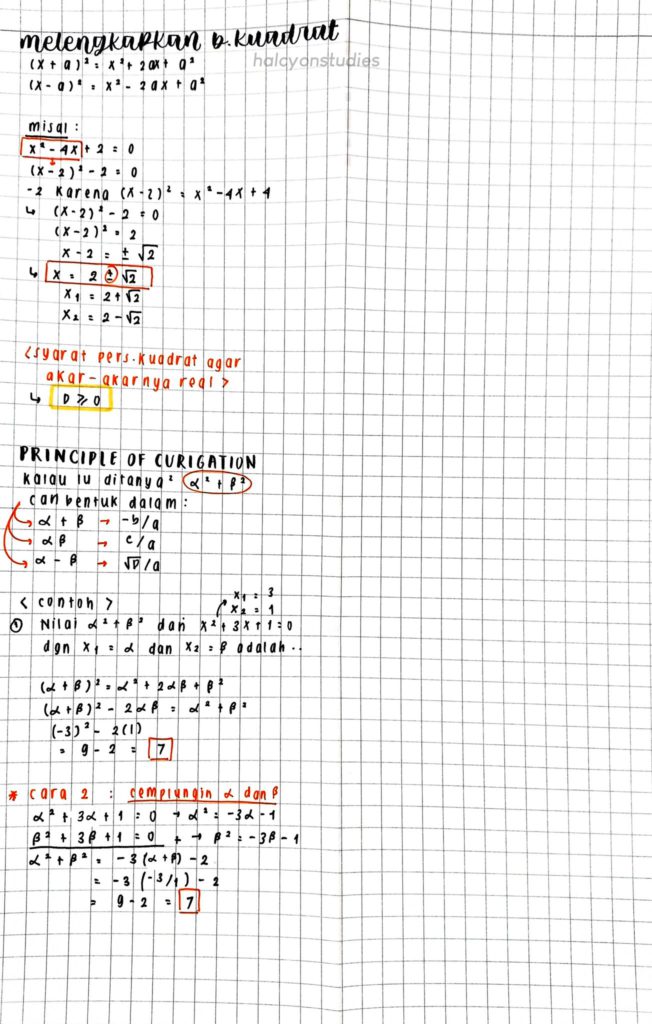 melengkapkan b.kuadrat
halcyonstudies
(x + a)² = x² + 2ax + a²
(x - a)² = x² - 2ax + a²
misal :
x² - 4x + 2 = 0
(x - 2)² - 2 = 0
-2 karena (x-2)² = x² - 4x + 4
↳ (x-2)² - 2 = 0
(x-2)² = 2
x - 2 = ± √2
↳ x = 2 ± √2
x₁ = 2 + √2
x₂ = 2 - √2
<syarat pers.kuadrat agar
akar-akarnya real>
↳ D ⩾ 0
PRINCIPLE OF CURIGATION
kalau lu ditanya² α² + β²
cari bentuk dalam :
α + β → -b/a
αβ → c/a
α - β → √D/a
< contoh >
x₁ = 3
x₂ = 1
① Nilai α² + β² dari x² + 3x + 1 = 0
dgn x₁ = α dan x₂ = β adalah ..
(α + β)² = α² + 2αβ + β²
(α + β)² - 2αβ = α² + β²
(-3)² - 2(1)
= 9 - 2 = 7
* cara 2 : cemplungin α dan β
α² + 3α + 1 = 0 → α² = -3α - 1
β² + 3β + 1 = 0 + → β² = -3β - 1
α² + β² = -3(α+β) - 2
= -3 (-3/1) - 2
= 9 - 2 = 7